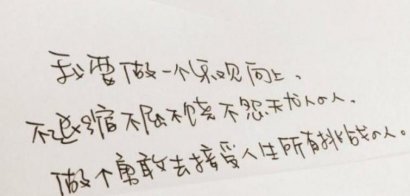 我要做一个乐观向上、
不退缩不屈不饶不怨天尤人的人、
做个勇敢去接受人生所有挑战的人。